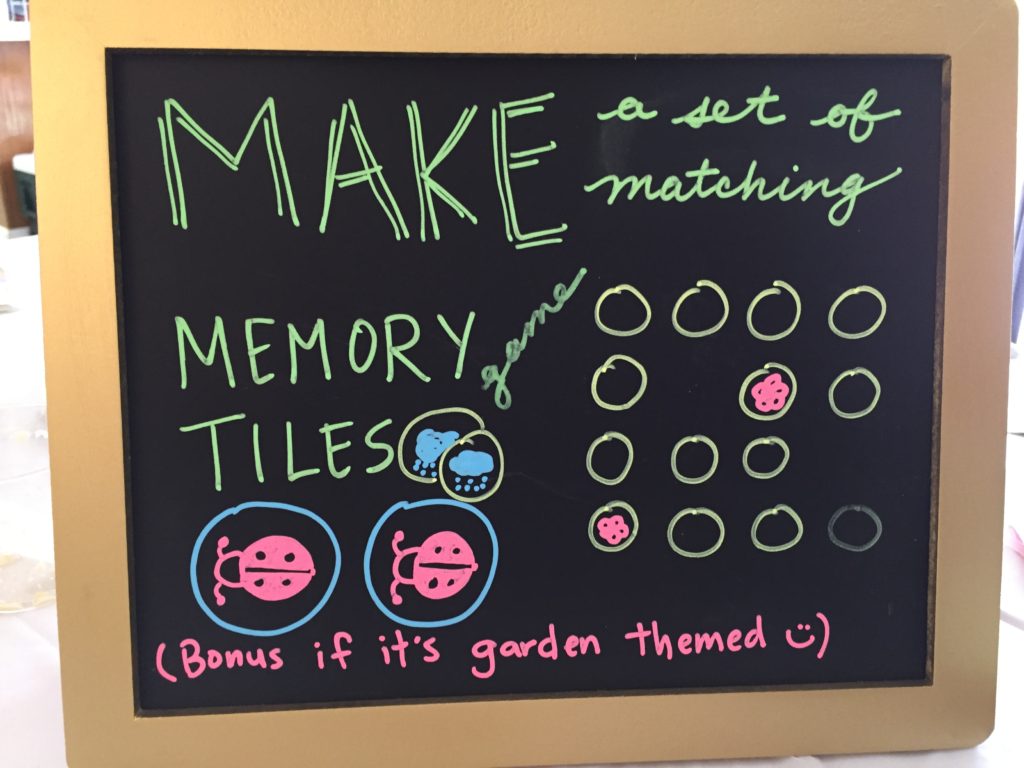 MAKE a set of
matching
MEMORY game
TILES
(Bonus if it's garden themed :))